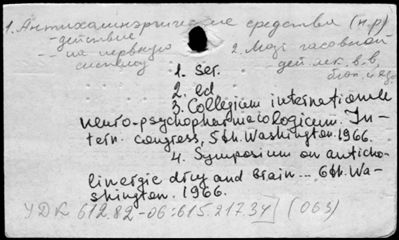 1. Антихолинэргические средства (н.р)
- действие
-- на нервную 2. Мозг головной
систему - дей. лек. в-в,
1. ser.
2. ed
3. Collegium internationale
neuro-psychopharmacologicum. In-
tern. congress, 5th. Washington. 1966.
4. Symposium on anticho-
linergic drug and brain... 6th. Wa-
shington. 1966.
УДК 612.82-06:615.217.34 (063)